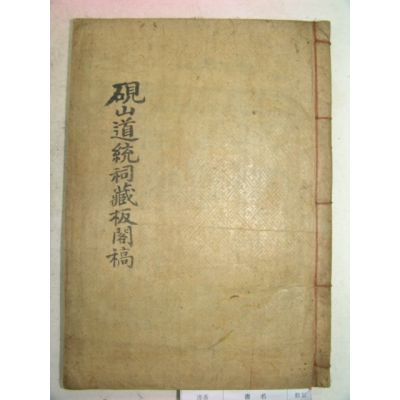 硯山道統祠藏板閣稿
書名